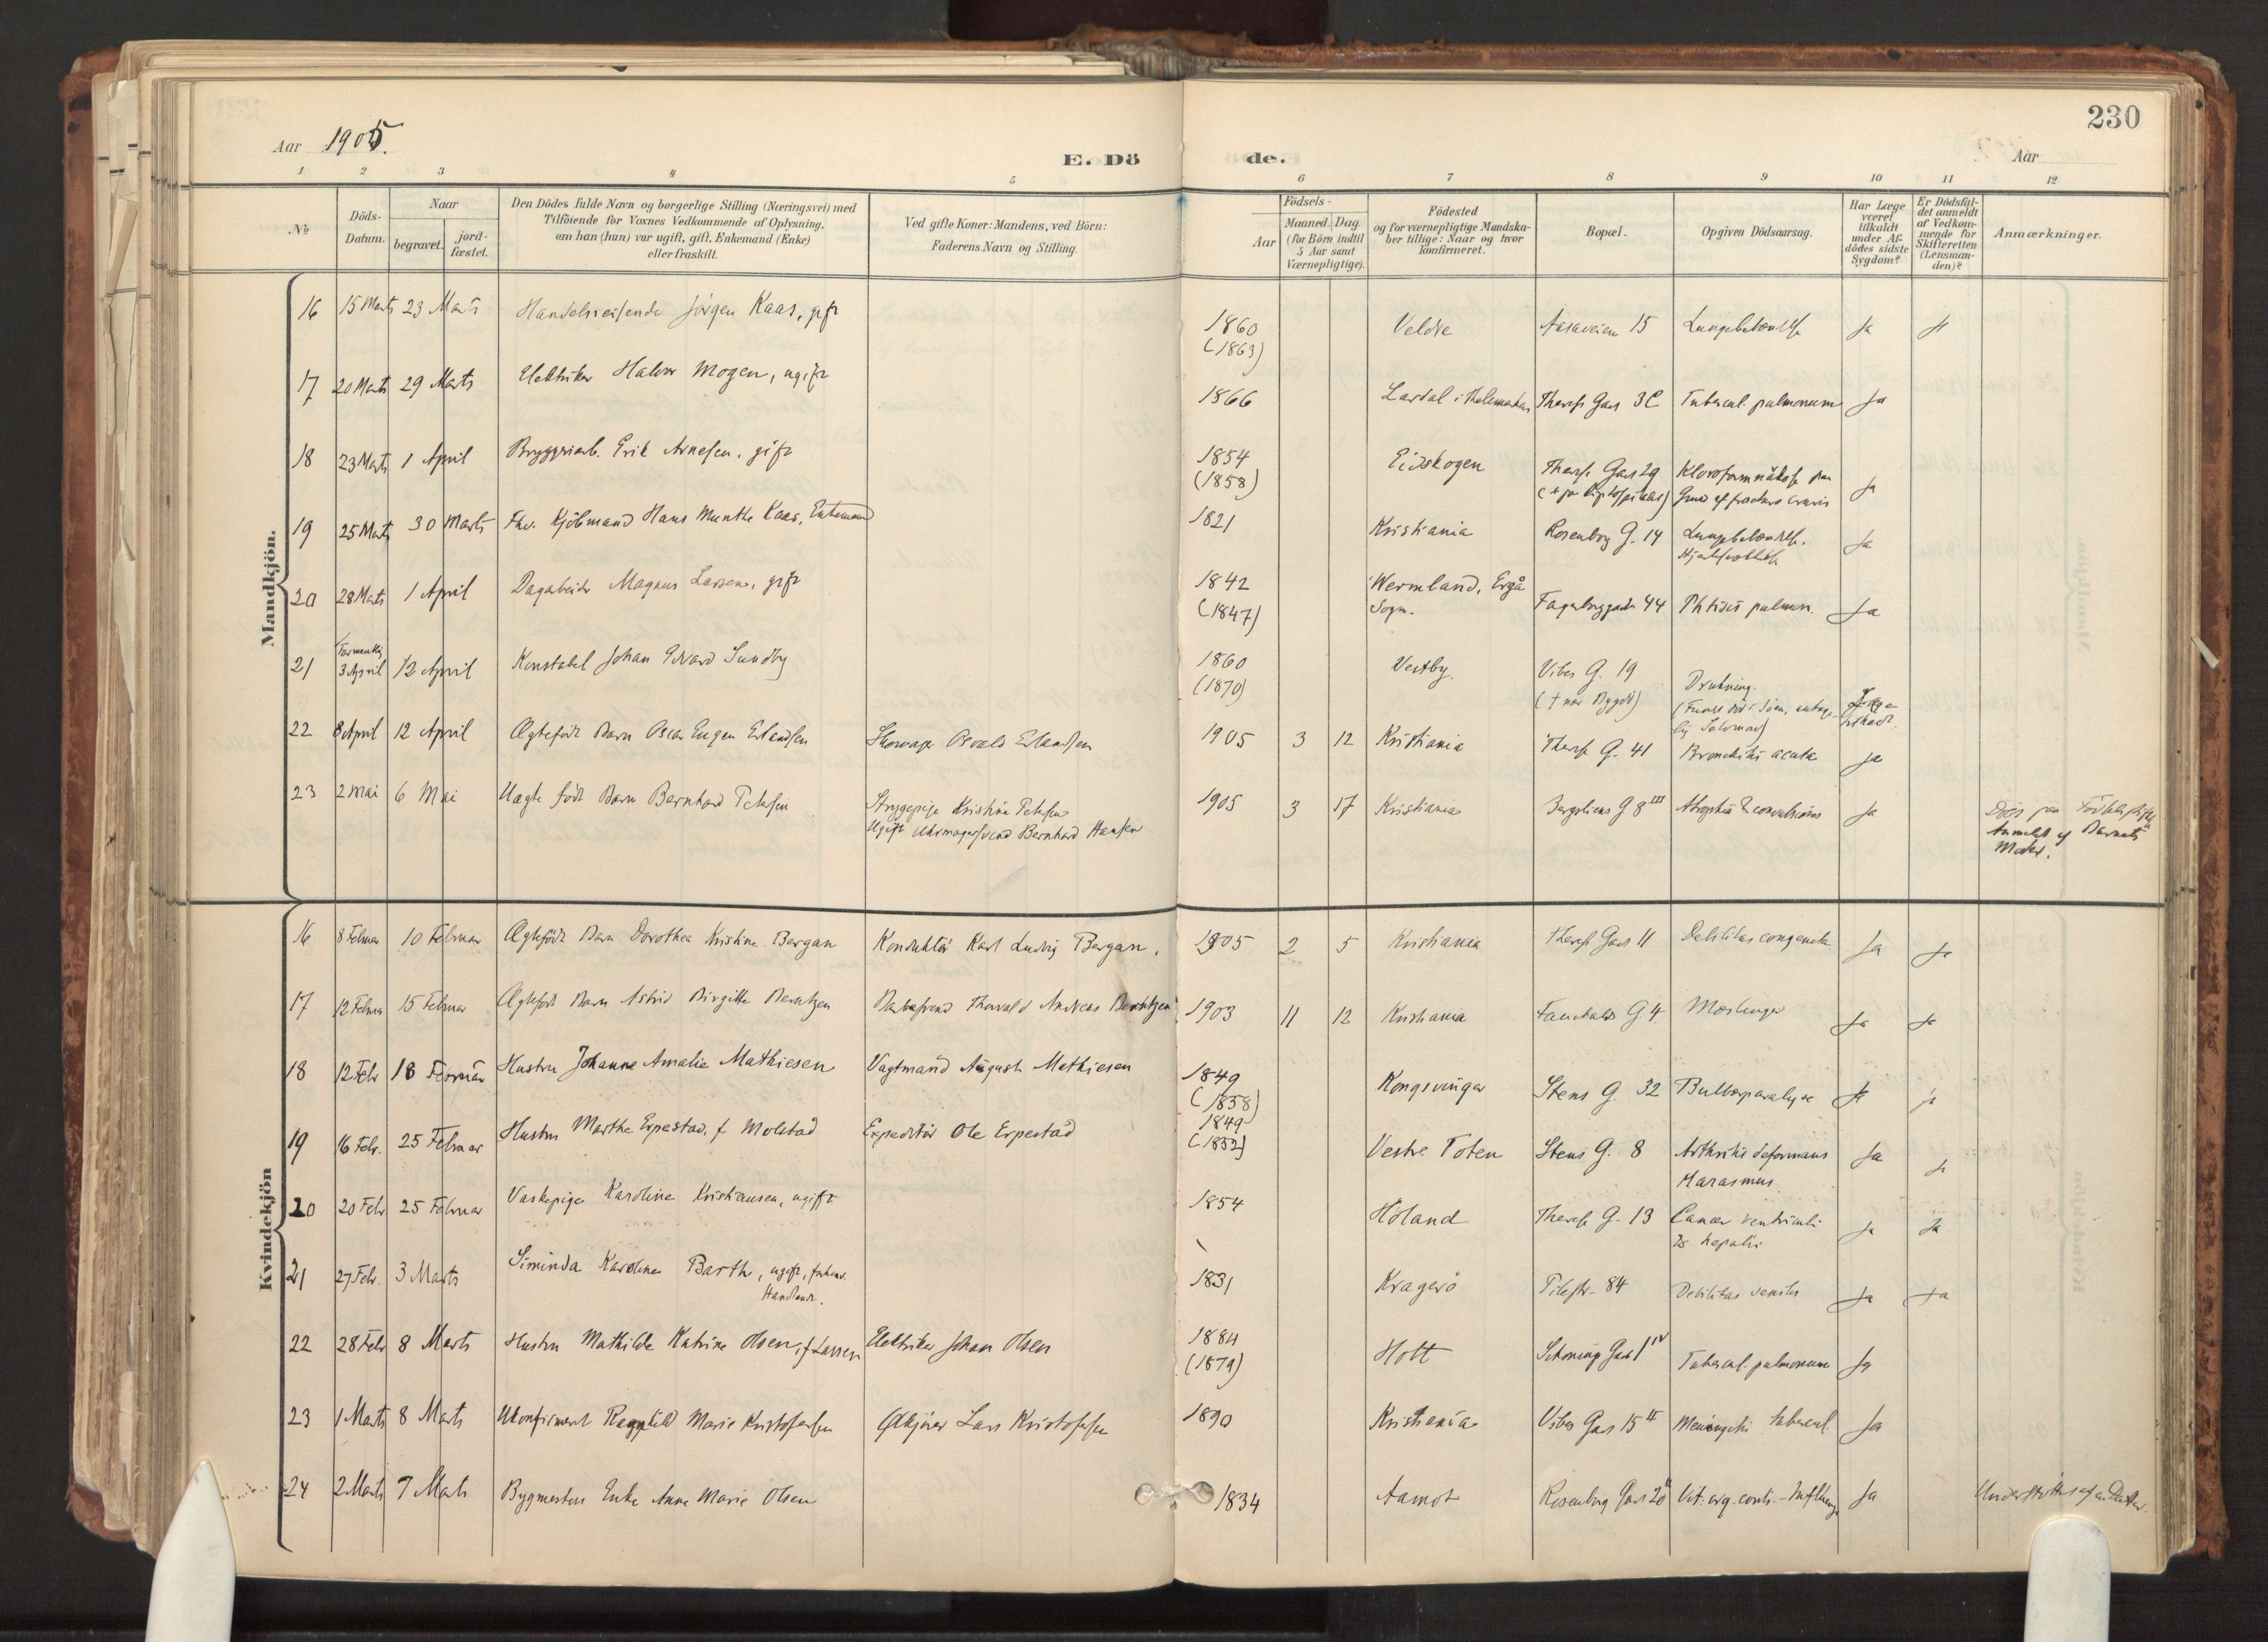 230
Aar 1905.
E. Dö de.
Aar
1 2 3 4 5 6 7 8 9 10 11 12
No
Döds-Datum.
Naar
begravet.
jord-fæstet.
Den Dödes fulde Navn og borgerlige Stilling (Næringsvei) med
Tilföiende for Voxnes Vedkommende af Oplysning,
om han (hun) var ugift, gift, Enkemand (Enke)
eller fraskilt.
Ved gifte Koner: Mandens, ved Börn:
Faderens Navn og Stilling.
Födsels-
Aar
Maaned. Dag.
(for Börn indtil
5 Aar samt
Værnepligtige).
Födested
og for værnepligtige Mandska-
ber tillige: Naar og hvor
konfirmeret.
Bopæl.
Opgiven Dödsaarsag.
Har Læge
været
tilkaldt
under Af-
dödes sidste
Sygdom?
Er Dödsfal-
det anmeldt
af Vedkom-
mende for
Skifteretten
(Lensman-
den)?
Anmærkninger.
Mandkjön.
16 15 Marts 23 Marts Handelsreisende Jörgen Kaas, gift 1860 Veldre Aasaveien 15 Lungebetændelse Ja Ja
(1863)
17 20 Marts 29 Marts Elektriker Halvor Mogen, ugift 1866 Lardal i Thelemarken Therese Gade 3C Tubercul. pulmonum Ja
18 23 Marts 1 April Bryggeriarb. Erik Arnesen, gift 1854 Eidskogen Therese Gade 29 Kloroformnarkose paa Ja
(1858) Grund af fractura cruris
19 25 Marts 30 Marts Fhv. Kjöbmand Hans Munthe Kaas, Enkemand 1821 Kristiania Rosenborg G. 14 Lungebetændelse. Ja
20 28 Marts 1 April Dagarbeider Magnus Larsen, gift 1842 Wermland, Ergå Fagerborggaden 44 Phtisis pulmon. Ja
(1847) Sogn.
21 3 April 12 April Konstabel Johan Edvard Sundby 1860 Vestby. Vibes G. 19 Drukning.
(1870) († nær Bygdö)
22 8 April 12 April Ægtefödt Barn Oscar Eugen Erlandsen Skomager Osvald Erlandsen 1905 3 12 Kristiania Therese G. 41 Bronchitis acuta Ja
23 2 Mai 6 Mai Uægte födt Barn Bernhard Petersen Strygepige Kristine Petersen 1905 3 17 Kristiania G 8 III Atrophia & convulsiones Ja Död paa Födselsstiftelsen
Ugift Uhrmagersvend Bernhard Hansen Anmeldt af Barnets
Moder.
Kvindekjön
16 8 Februar 10 Februar Ægtefödt Barn Dorothea Kristine Bergan Konduktör Karl Ludvig Bergan. 1905 2 5 Kristiania Therese Gade 11 Debilitas congenita Ja Ja
17 12 Februar 15 Februar Ægtefödt Barn Astrid Birgitte Berntzen Thorvald Andreas Berntzen 1903 11 12 Kristiania Fauchalds G 4 Mæslinger Ja Ja
18 12 Febr 18 Februar Hustru Johanne Amalie Mathiesen Vagtmand August Mathiesen 1849 Kongsvinger Stens G. 32 Bulbærparalyse Ja Ja
(1858)
19 16 Febr. 25 Februar Hustru Marthe Erpestad, f. Molstad Expeditör Ole Erpestad 1849 Vestre Toten Stens G. 8 Arthritis deformans Ja Ja
(1852) Marasmus
20 20 Febr 25 Februar Vaskepige Karoline Kristiansen, ugift 1854 Höland Therese G. 13 Cancer ventriculi Ja Ja
& hepatis
21 27 Febr. 3 Marts Siminda Karoline Barth, ugift, forhenv. 1831 Kragerö Pilestr. 84 Debilitas senilis Ja Ja
Handlende.
22 28 Febr 8 Marts Hustru Mathilde Katrine Olsen, f. Larsen Elektriker Johan Olsen 1884 Holt Schöning Gade 1 IV Tubercul. pulmonum Ja
(1879)
23 1 Marts 8 Marts Ukonfirmert Ragnhild Marie Kristofersen Ølkjörer Lars Kristofersen 1890 Kristiania Vibes Gade 15 II Meningitis tubercul. Ja
24 2 Marts 7 Marts Bygmesters Enke Anne Marie Olsen 1834 Aamot Rosenborg Gade 20 Vit. org. cordis - Influenza Ja Understöttes af en Datter.